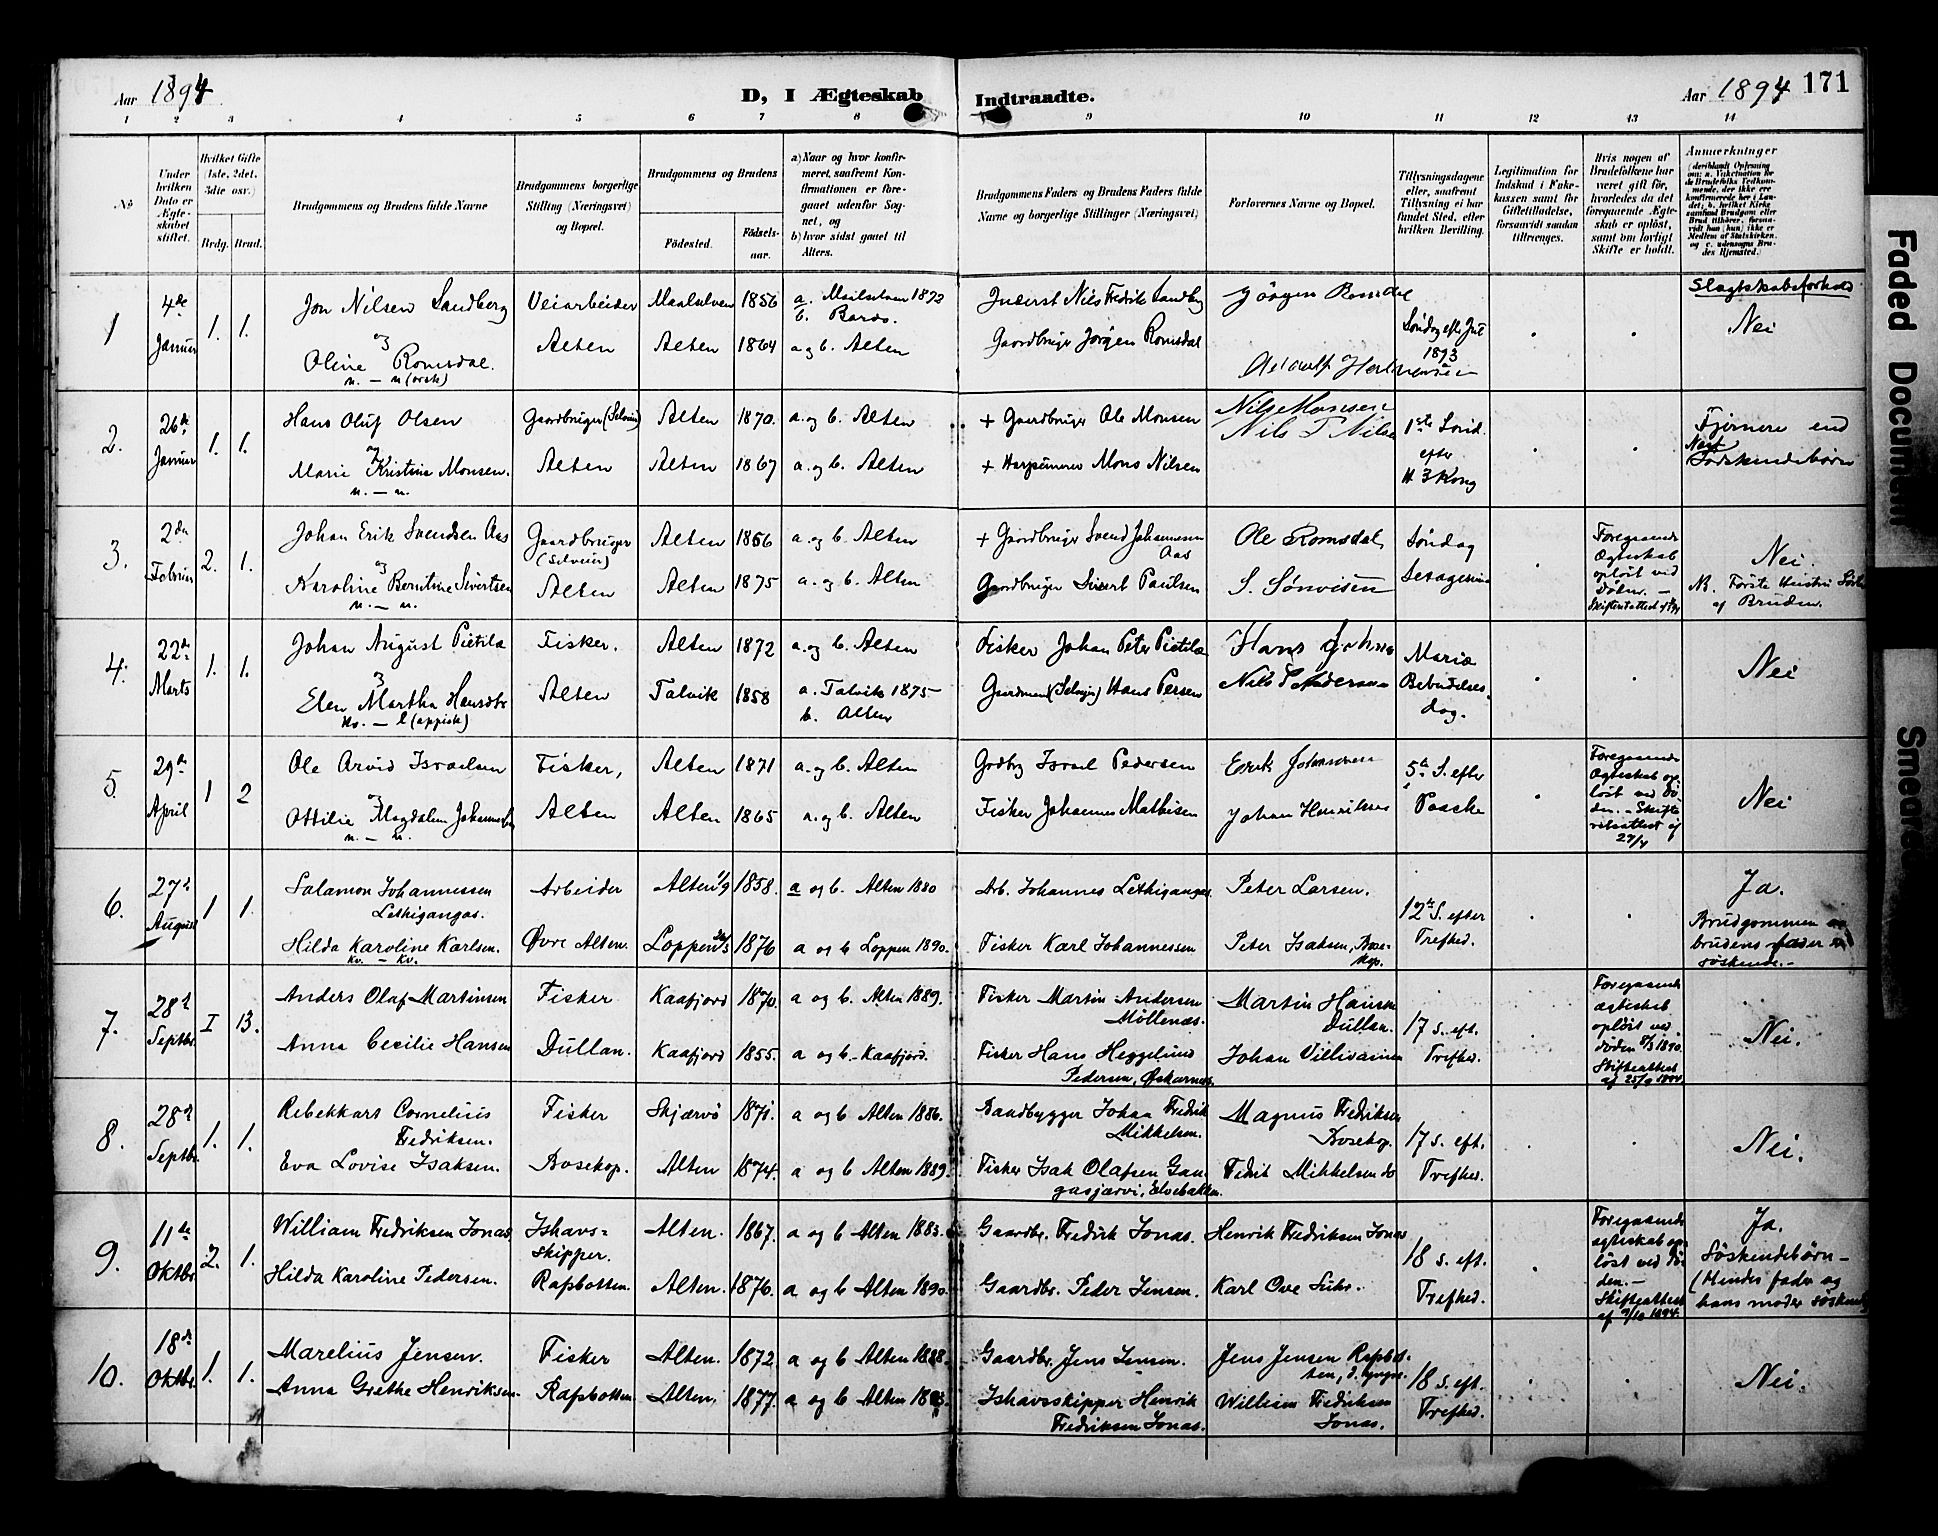 Aar 1894
D, I Ægteskab Indtraadte.
Aar 1894 171
1 2 3 4 5 6 7 8 9 10 11 12 13 14
№
Under hvilken Dato er Ægteskabet stiftet.
Hvilket Gifte (1ste, 2det, 3die osv.)
Brdg. Brud.
Brudgommens og Brudens fulde Navne
Brudgommens borgerlige Stilling (Næringsvei) og Bopæl.
Brudgommens og Brudens
Fødested.
Fødselsaar.
a) Naar og hvor konfirmeret, saafremt Konfirmationen er foregaaet udenfor Sognet, og
b) hvor sidst gaaet til Alters.
Brudgommens Faders og Brudens Faders fulde Navne og borgerlige Stillinger (Næringsvei)
Forlovernes Navne og Bopæl.
Tillysningsdagene eller, saafremt Tillysning ei har fundet Sted, efter hvilken Bevilling.
Legitimation for Indskud i Enkekassen samt for Giftetilladelse, forsaavidt saadan tiltrænges.
Hvis nogen af Brudefolkene har været gift før, hvorledes da det foregaaende Ægteskab er opløst, samt om lovligt Skifte er holdt.
Anmærkninger
1 4de Januar 1. 1.
Jon Nilsen Sandberg Veiarbeider Maalselven 1856 a. Maalselven 1872
b. Bardo.
Inderst Nils Fredrik Sandbg Jörgen Romsdal
og
Oline Romsdal. Alten Alten 1864 a og b. Alten
n. — n (orsk)
Gaardbruger Jörgen Romsdal
Søndag efter Jul 1893
Slægtskabsforhold
Nei
2. 26de Januar 1. 1.
Hans Oluf Olsen Gaardbruger (Selveier) Alten 1870. a. og b. Alten
+ Gaardbruger Ole Monsen Nils Monsen
Nils T Nilsen
og
Marie Kristina Monsen. Alten Alten 1867 a. og b. Alten
n. — n.
Mons Nilsen
1ste Sønd. efter H 3 Kong
Fjernere end
Næst
Södskendebørn
3. 2den Februar 2. 1.
Johan Erik Svendsen Aas Gaardbruger (Selveier) Alten 1856 a. og b. Alten
+ Gaardbruger Svend Johannesen Aas Ole Romsdal,
og
Karoline Berntine Sivertsen Alten Alten 1875 a. og b. Alten
n. — n.
Gaardbruger Sivert Paulsen
Søndag Sexagesima
Foregaaende Ægteskab opløst ved Døden. —
Nei.
NB. Første Hustru Søster af Bruden.
4. 22de Marts 1. 1.
Johan August Pietilæ Fisker. Alten 1872 a. og b. Alten
Fisker Johan Peter Pietilæ
og
Elen Martha Hansdtr Alten Talvik 1858 a. Talvik 1875
b. Alten
Kv. — l (appisk)
Gaardmand (Selveier) Hans Persen Nils P Andersen
Mariæ Bebudelses-dag.
Nei
5. 29de April 1 2
Ole Arvid Israelsen Fisker, Alten 1871 a. og b. Alten
Gdbrg Israel Pedersen Erik Johannesen
og
Ottilia Magdalena Johannesdtr Alten Alten 1865 a. og b. Alten
n. — n.
Fisker Johannes Mathisen Johan Henriksen
5te S. efter Paaske
Foregaaende Ægteskab opløst ved Døden. — Skifteretsattest af 27/4
Nei
6. 27de August 1 1.
Salamon Johannessen Lethigangas. Arbeider Alten 1858. a og b. Alten 1880
Arb. Johannes Lethigangas. Peter Larsen.
Hilda Karoline Karlsen. Øvre Alten. Loppen 1876 a og b Loppen 1890.
Kv. — Kv.
Fisker Karl Johannessen Peter Isaksen, Bosekop.
12te S. efter Trefhed.
Ja.
Brudgommen og brudens fader er søskende. —
7. 28de Septbr. I 13.
Anders Olaf Martinsen Fisker Kaafjord 1870. a og b. Alten 1889.
Fisker Martin Andersen Møllenæs. Martin Hansen Dullan.
Anna Cecilie Hansen Dullan. Kaafjord 1855. a og b — Kaafjord.
Fisker Hans Heggelund Pedersen, Øskarnæs. Johan Villivainen
17 S. eft. Trefhed.
Foregaaende ægteskab opløst ved døden 8/3 1890. Skifteattest af 25/9 1894
Nei.
8. 28de Septbr. 1. 1.
Rebekkars Cornelius Fredriksen. Fisker Skjærvø 1871. a og b Alten 1886.
Baadbygger Johan Fredrik Mikkelsen. Magnus Fredriksen Bosekop.
Eva Lovise Isaksen. Bosekop. Alten 1874. a og b Alten 1889.
Fisker Isak Olafsen Gangasjærvi, Elvebakken. Fedrik Mikkelsen do
17 S. eft. Trefhed.
Nei.
9. 11te Oktbr. 2. 1.
William Fredriksen Jonas. Ishavs=skipper. Alten. 1867. a og b Alten 1883.
Gaardbr. Fredrik Jonas. Henrik Fredriksen Jonas
Hilda Karoline Pedersen. Rafsbotten. Alten. 1876. a og b Alten 1890.
Gaardbr. Peder Jensen. Karl Ove Suhr.
18 S. eft. Trefhed.
Foregaaende ægteskab opløst ved døden. — Skifteattest af 9/10 1894.
Ja.
Søskendebørn —
(Hindes fader og hans moder søskende)
10. 18de Oktbr. 1. 1.
Marelius Jensen. Fisker Alten. 1872. a og b Alten 1888.
Gaardbr. Jens Jensen. Jens Jensen Rafsbotten,
Anna Grethe Henriksen. Rafsbotten Alten, 1877. a og b Alten
Ishavsskipper Henrik Fredriksen Jonas. William Fredriksen Jonas.
18 S. eft. Trefhed.
Nei.
Faded Document
Smeared